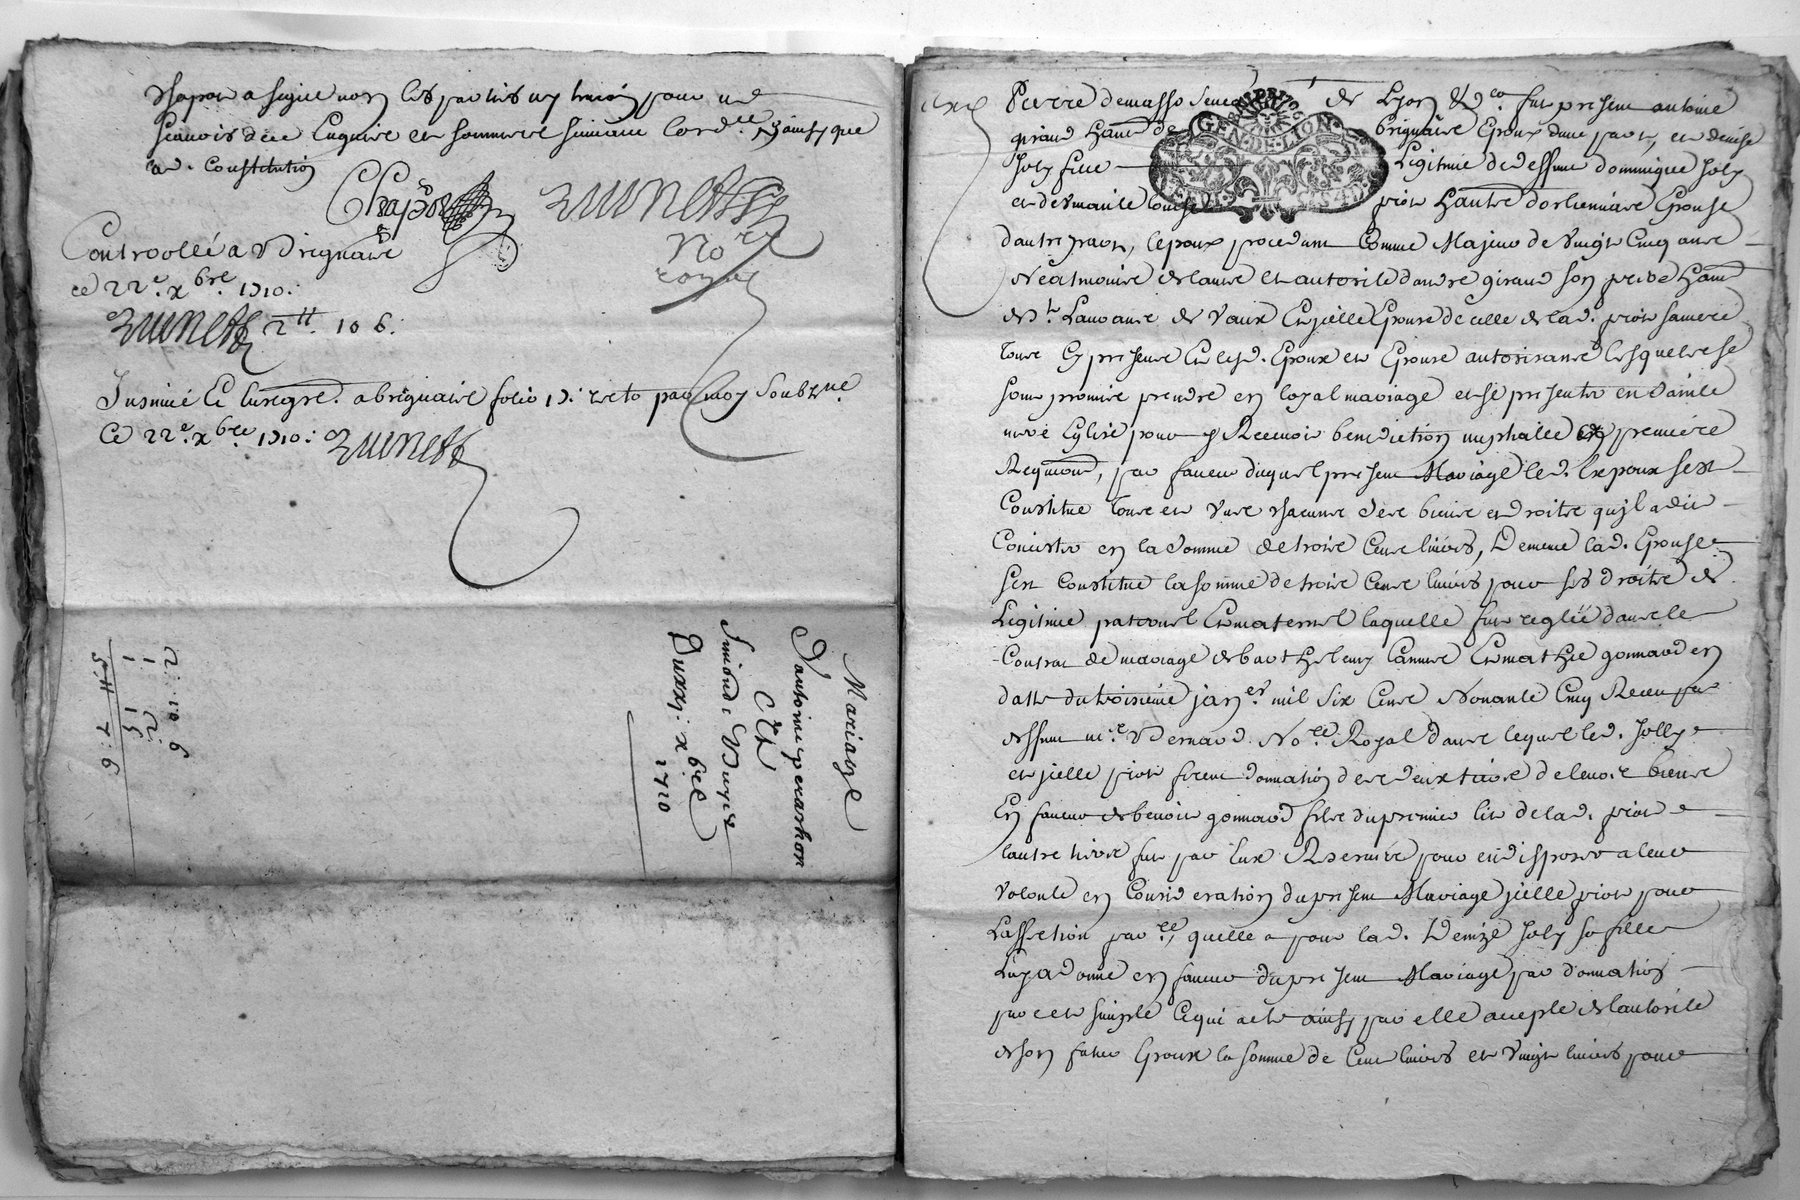 Chapon a signé non les parties ny témoins pour ne
scavoir de ce Enquire et sommere suivant l'ord.ce ainsy que
lad. Constitution
Chapon
No.re
royal
Controollé a Brignaire
ce 22e. xbre. 1710.
2tt. 10 6.
Insinué Et Enregré. a brignaire folio reto par moy soubzné
Ce 22e. xbre 1710.
2: 10 6
5tt 7: 6
Mariage
D'antoine
Et
Du xxij: xbre
1710
GEN·DE·LION
Pierre demasso Senec de Lyon &a fut present antoine
giraud habt. de brignaire Epoux dune part, et denise
Joly fille Legitime de deffunt dominique Joly
et de piot habtre. dorlienaire Epouse
dautre part, lepoux procedant Comme Majeur de vingt Cinq ans
Neatmoins de lautorité dandré giraud son pere habt.
de Vaux Et jelle Epouse de celle de lad. piot sa mere
tous Cy presents Et lesd. Epoux et Epouse autorisants lesquels se
sont promis prendre en loyal mariage et se presenter en sainte
mere Eglise pour y Recevoir benediction nuptialle a premiere
Requion, par faveur duquel present Mariage led. Expoux sest
Constitué tous et uns chacuns ses biens et droits quil a dit
Consister en la somme de trois Cents livres, Demême lad. Epouse
sest Constitué la somme de trois Cents livres pour ses droits de
Legitime paternel Et maternel laquelle fut reglée dans le
Contrat de mariage de barthelemy Et mathie gonnard en
datte du troisieme janer. mil six Cents Nonante Cinq Receu par
deffunt me. Bernard Nore. Royal dans lequel led. Jolly
et jelle piot firent donnation des deux tiers de leurs biens
En faveur de benoit gonnard fils du premier lit de lad. piot
lautre tiers fut par Eux Reservée pour en disposer a leur
volonté en Consideration du present Mariage jelle piot pour
Laffection par.lle quelle a pour lad. Denize Joly sa fille
Luy a donné en faveur du present Mariage par donnation
pure et simple Ce qui a été ainsy par elle accepté de lautorité
de son futur Epoux la somme de Cent livres et vingt livres pour